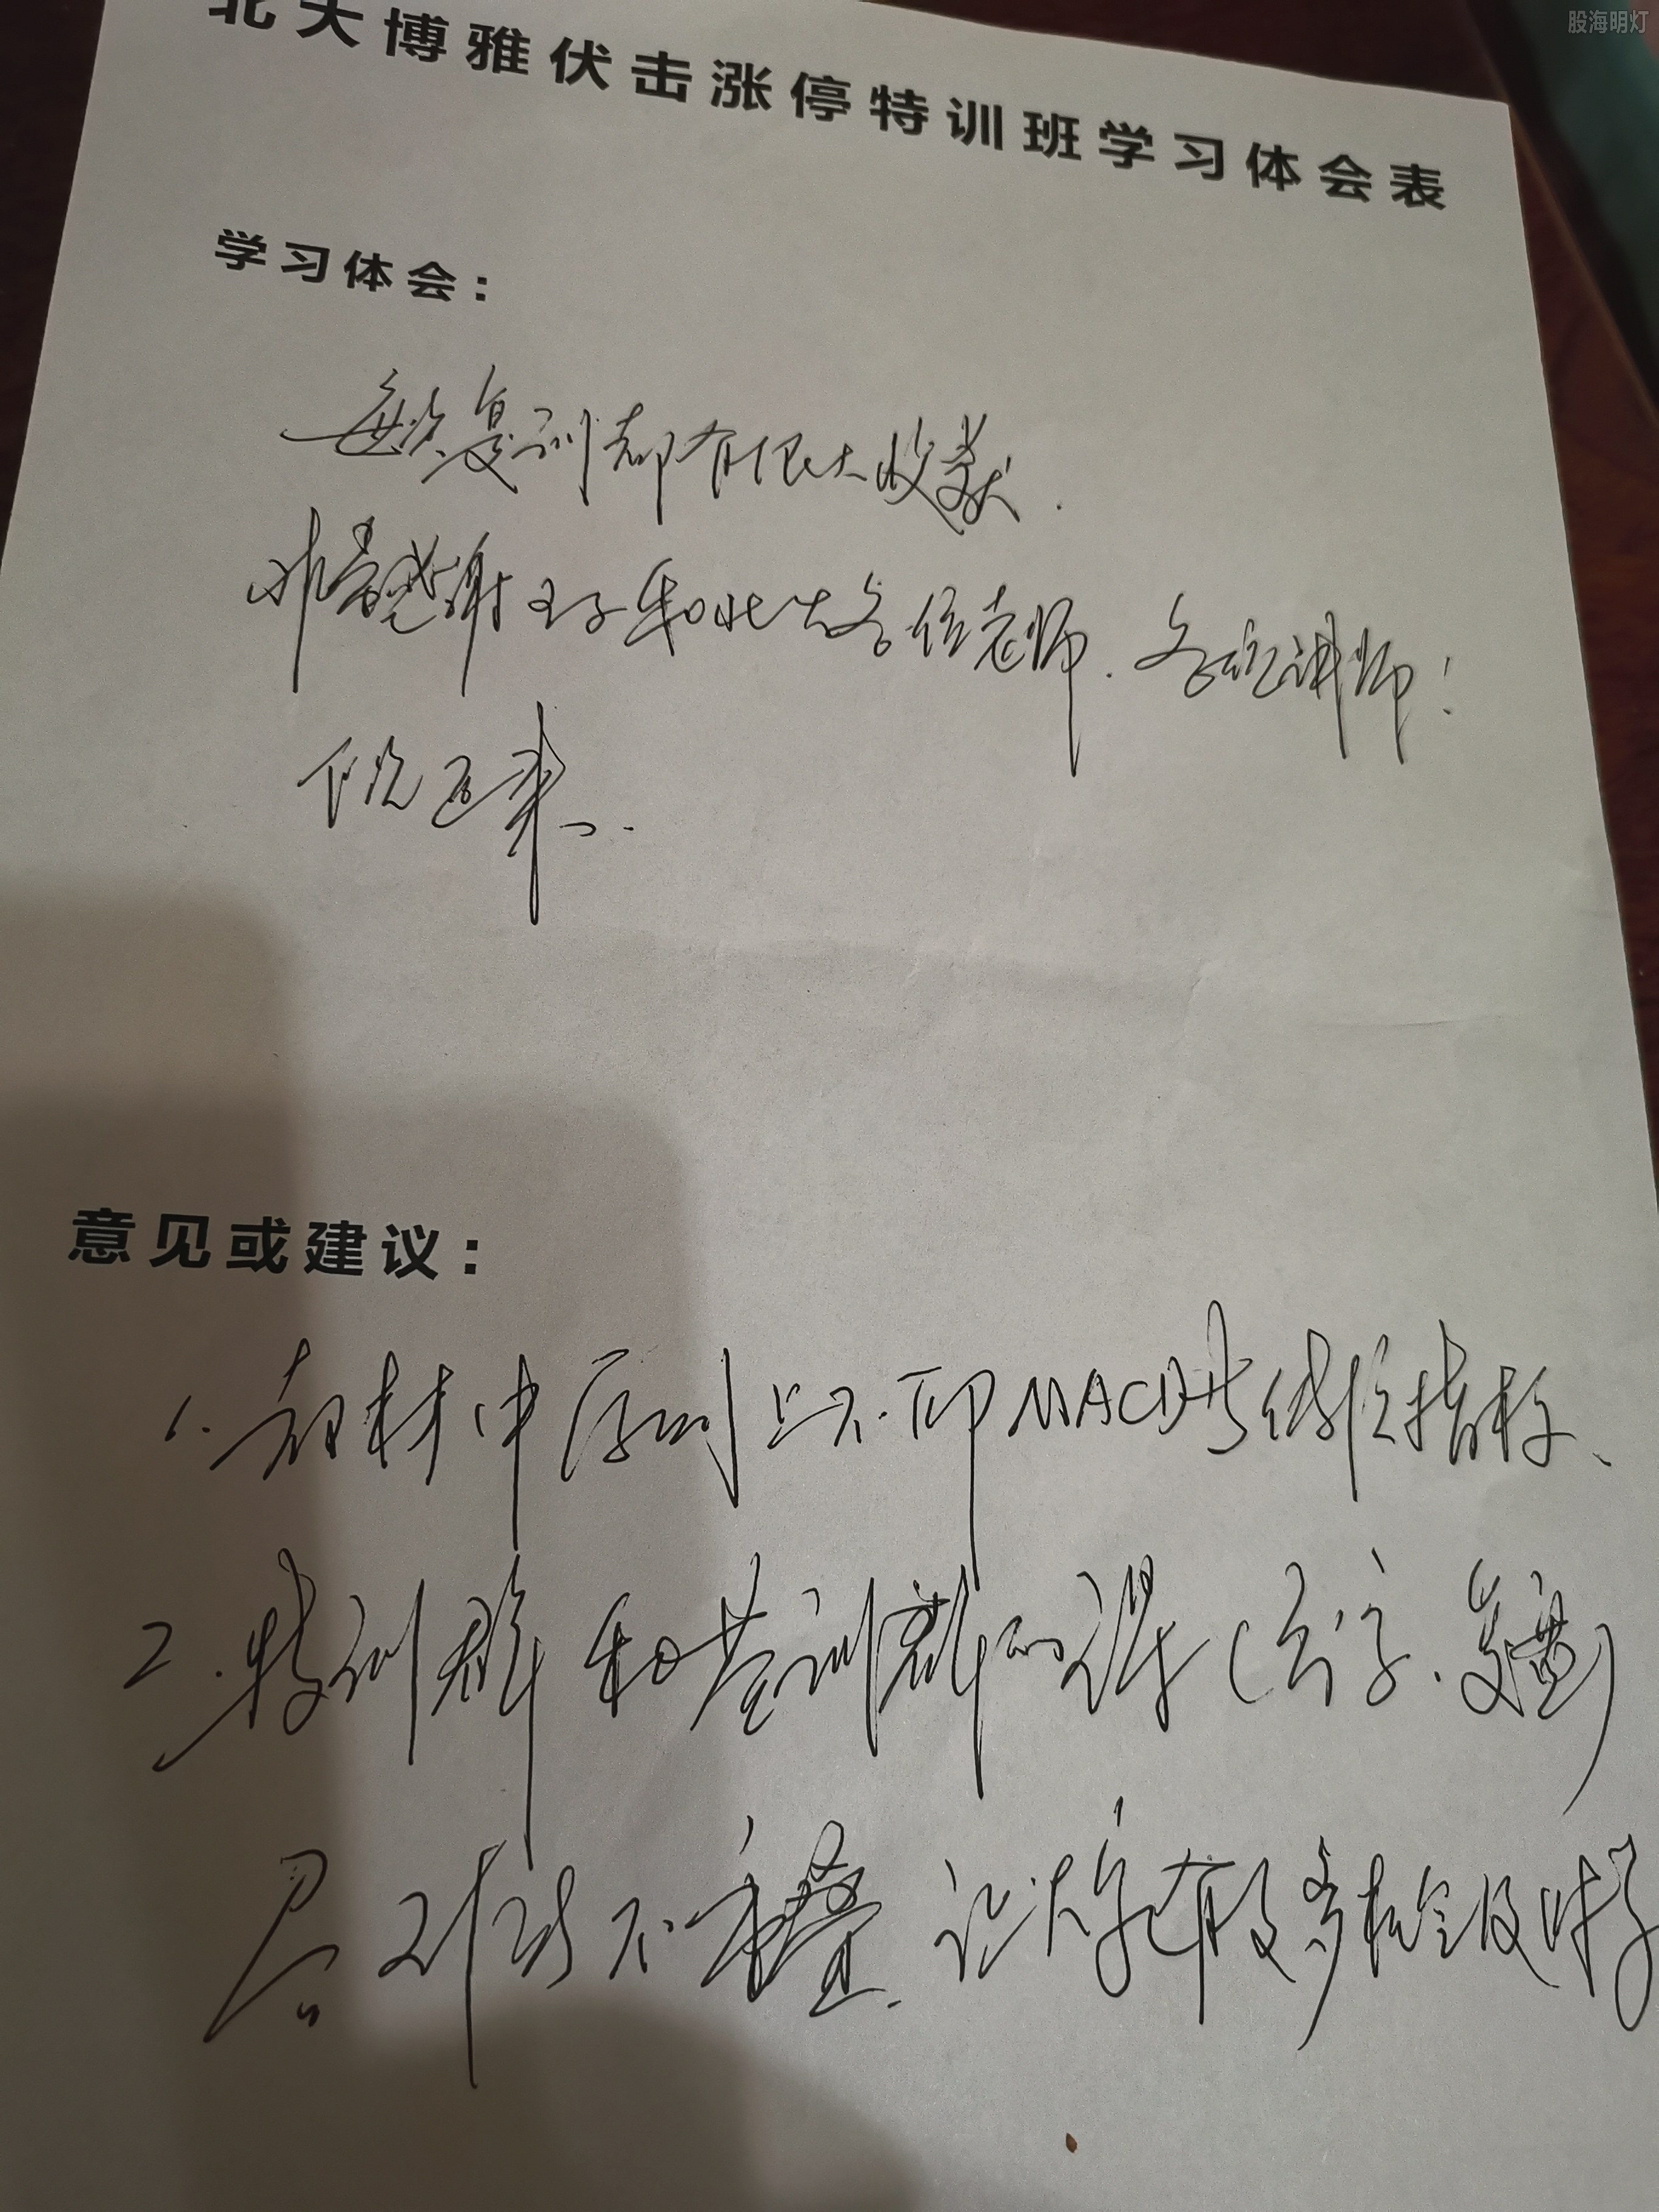 股海明灯
北大博雅伏击涨停特训班学习体会表
学习体会：
每次复训都有很大收获.
非常感谢王子和北大各位老师.各位讲师!
下次再来.
意见或建议：
1.教材中原则上不印MACD等传统指标、
2.特训群和营训群的课(云字、复盘)
尽时间不重叠.让大家有更多机会及时学